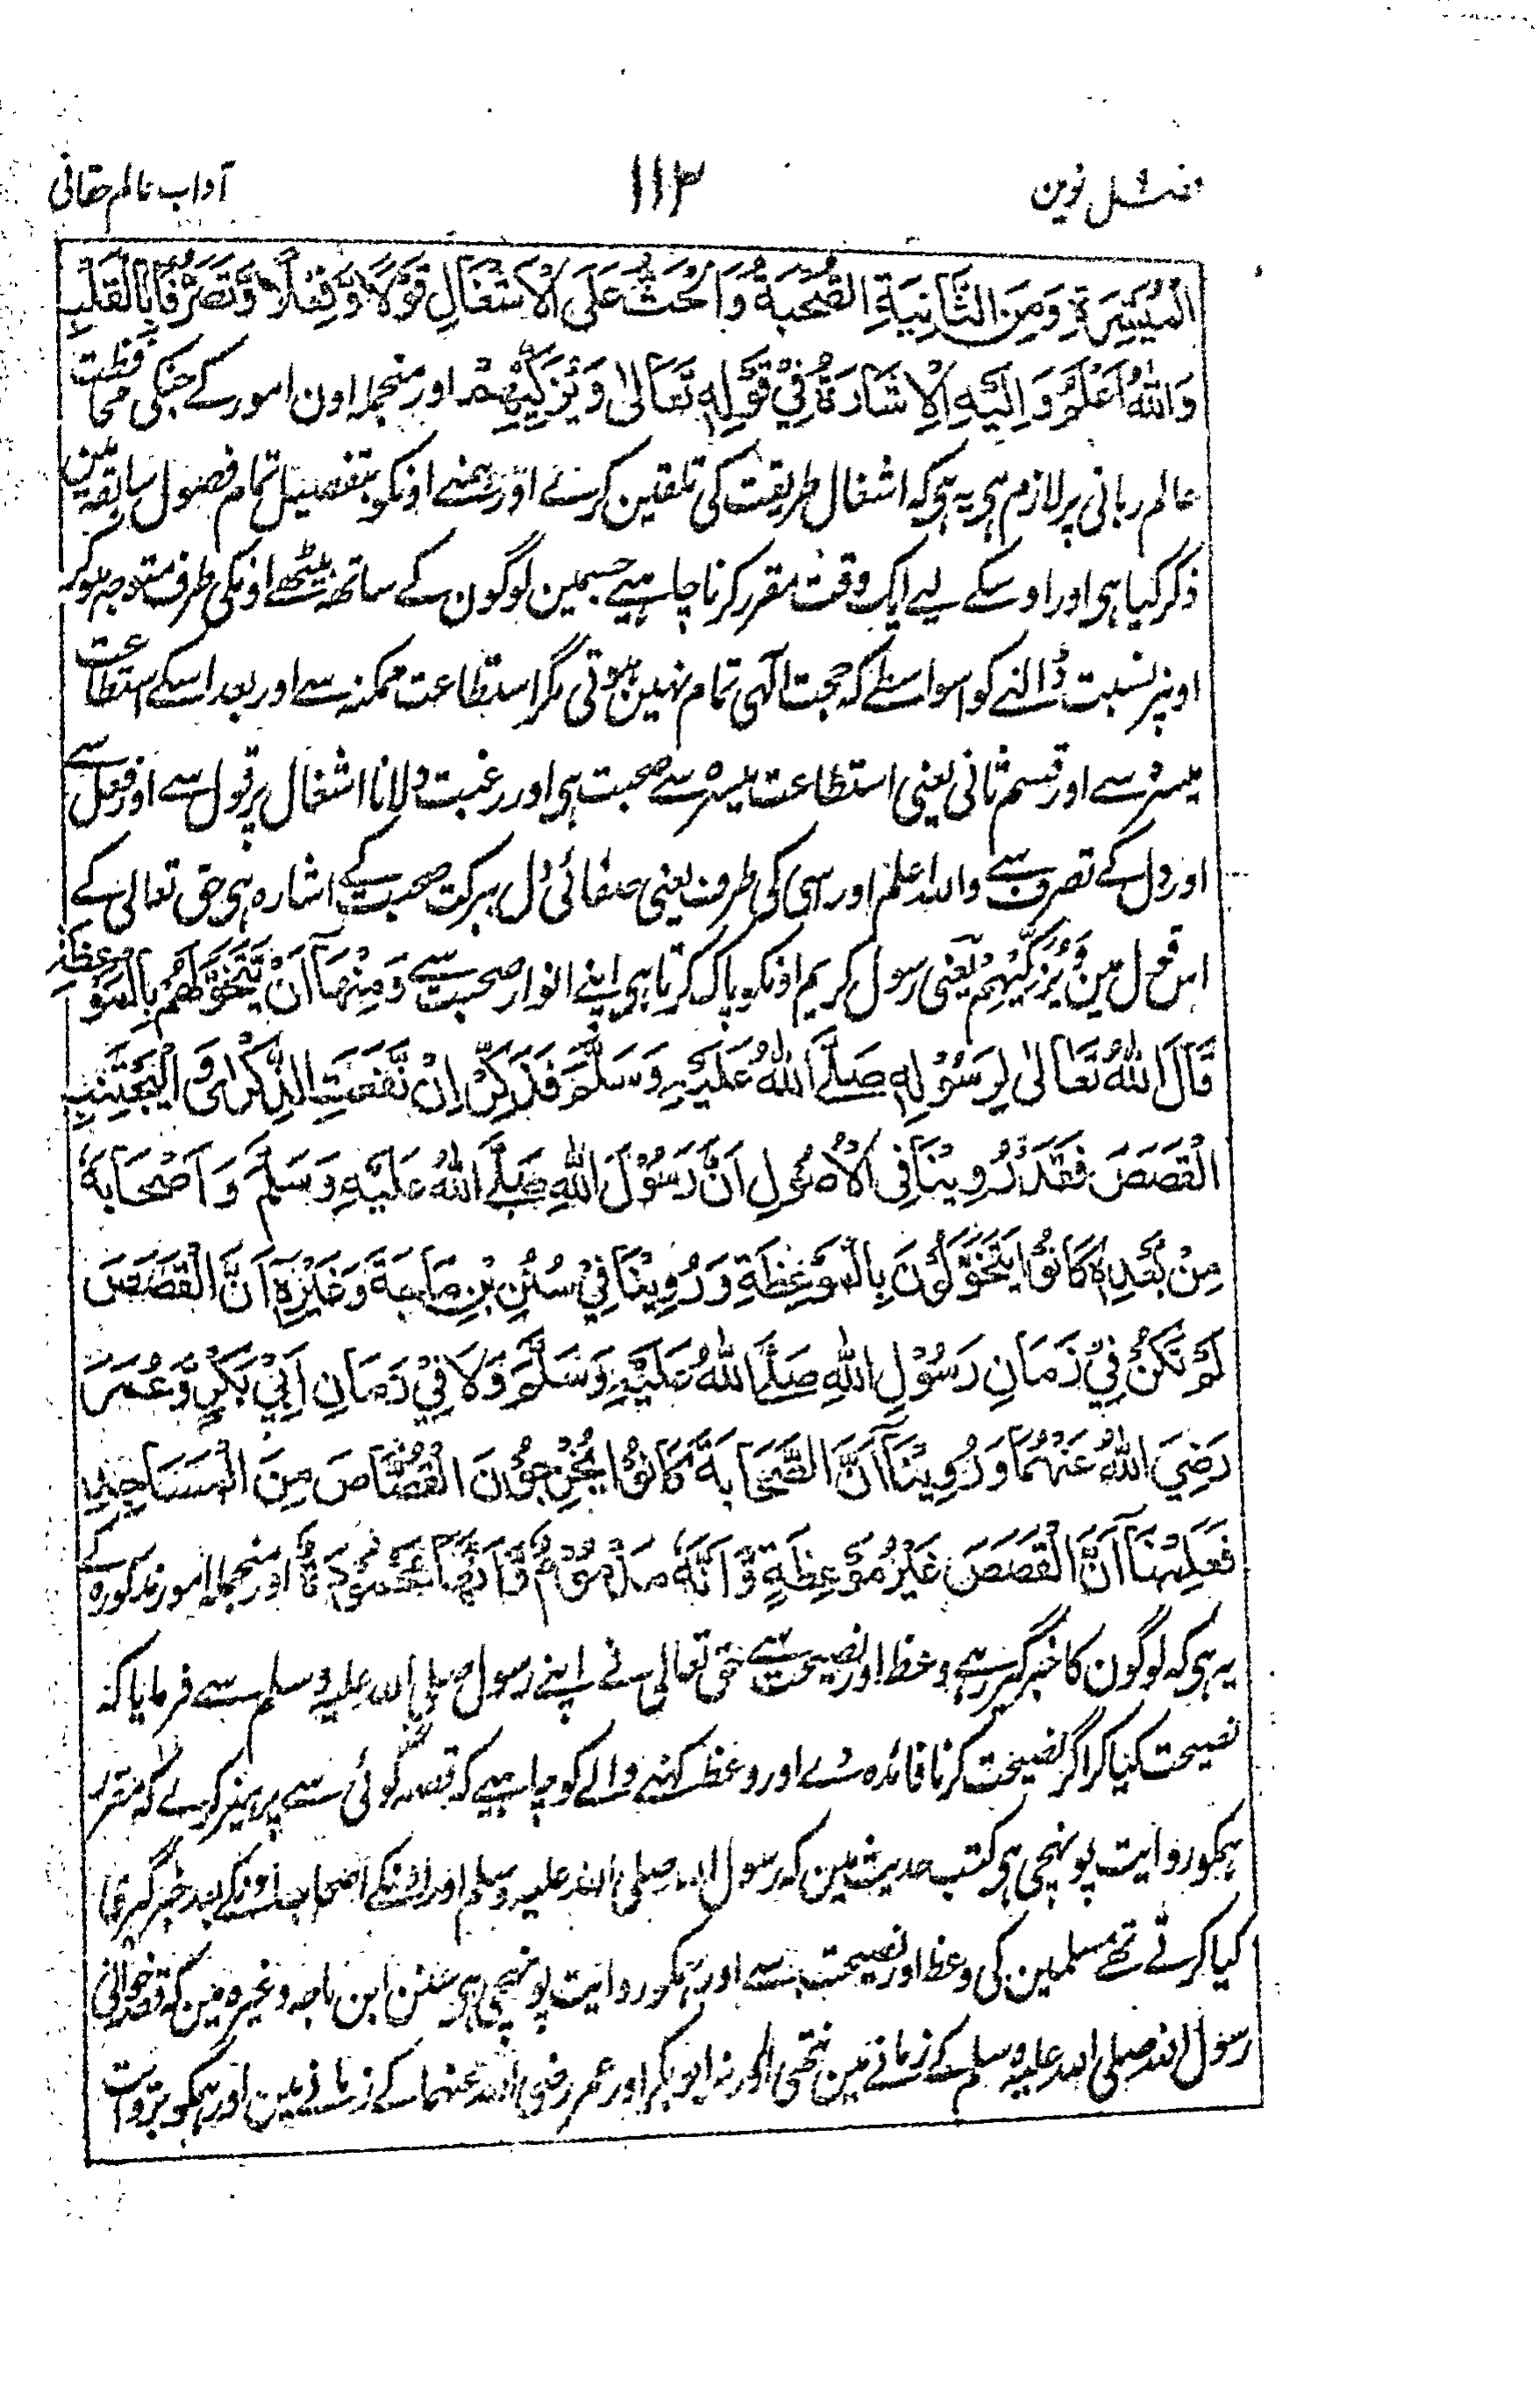 فصل نوین ۱۱۳ آداب عالم حقانی
الْمُيَسِّرَةِ وَمِنَ الثَّانِيَةِ الصُّحْبَةُ وَالْحَثُّ عَلَى الْاَشْغَالِ قَوْلًا وَّفِعْلًا وَّتَصَرُّفًا بِالْقَلْبِ
وَاللّٰهُ اَعْلَمُ وَاِلَيْهِ الْاِشَارَةُ فِيْ قَوْلِهٖ تَعَالٰى وَيُزَكِّيْهِمْ اور منجملہ اون امور کے جنکی محافظت
عالم ربانی پر لازم ہی یہ ہی کہ اشغال طریقت کی تلقین کرے اور ہمنے اونکو بتفصیل تمام فصول سابقہ مین
ذکر کیا ہی اور اوسکے لیے ایک وقت مقرر کرنا چاہیے جسمین لوگون کے ساتھ بیٹھے اونکی طرف متوجہ ہوکر
اونپر نسبت ڈالنے کو اسواسطے کہ حجت الٰہی تمام نہین ہوتی مگر استطاعت ممکنہ سے اور بعد اسکے استطاعت
میسرہ سے اور قسم ثانی یعنی استطاعت میسرہ سے صحبت ہی اور رغبت دلانا اشغال پر قول سے اور فعل سے
اور دل کے تصرف سے واللہ اعلم اور اسی کی طرف یعنی صفائی دل ببرکت صحبت کے اشارہ ہی حق تعالی کے
اس قول مین وَيُزَكِّيْهِمْ یعنی رسول کریم اونکو پاک کرتا ہی اپنے انوار صحبت سے وَمِنْهَا اَنْ يَّتَخَوَّلَهُمْ بِالْمَوْعِظَةِ
قَالَ اللّٰهُ تَعَالٰى لِرَسُوْلِهٖ صَلَّى اللّٰهُ عَلَيْهِ وَسَلَّمَ فَذَكِّرْ اِنْ نَّفَعَتِ الذِّكْرٰى وَلْيَجْتَنِبِ
الْقَصَصَ فَقَدْ رُوِيْنَا فِى الْاُصُوْلِ اَنَّ رَسُوْلَ اللّٰهِ صَلَّى اللّٰهُ عَلَيْهِ وَسَلَّمَ وَاَصْحَابَهٗ
مِنْ بَعْدِهٖ كَانُوْا يَتَخَوَّلُوْنَ بِالْمَوْعِظَةِ وَرُوِيْنَا فِيْ سُنَنِ بْنِ مَاجَةَ وَغَيْرِهٖ اَنَّ الْقَصَصَ
لَمْ تَكُنْ فِيْ زَمَانِ رَسُوْلِ اللّٰهِ صَلَّى اللّٰهُ عَلَيْهِ وَسَلَّمَ وَلَا فِيْ زَمَانِ اَبِيْ بَكْرٍ وَّعُمَرَ
رَضِيَ اللّٰهُ عَنْهُمَا وَرُوِيْنَا اَنَّ الصَّحَابَةَ كَانُوْا يُخْرِجُوْنَ الْقُصَّاصَ مِنَ الْمَسَاجِدِ
فَعَلِمْنَا اَنَّ الْقَصَصَ غَيْرُ مَوْعِظَةٍ وَّاَنَّهٗ مَذْمُوْمٌ وَّاَنَّهَا مَحْمُوْدَةٌ اور منجملہ امور مذکورہ کے
یہ ہی کہ لوگون کا خبرگیر رہے وعظ اور نصیحت سے حق تعالی نے اپنے رسول صلی اللہ علیہ وسلم سے فرمایا کہ
نصیحت کیا کر اگر نصیحت کرنا فائدہ دے اور وعظ کہنے والے کو چاہیے کہ قصہ گوئی سے پرہیز کرے کہ مقرر
ہمکو روایت پونہچی ہی کتب حدیث مین کہ رسول اللہ صلی اللہ علیہ وسلم اور اونکے اصحاب اونکے بعد خبرگیری
کیا کرتے تھے مسلمین کی وعظ اور نصیحت سے اور ہمکو روایت پونہچی ہی سنن ابن ماجہ وغیرہ مین کہ قصہ خوانی
رسول اللہ صلی اللہ علیہ وسلم کے زمانے مین نتھی اور نہ ابو بکر اور عمر رضی اللہ عنہما کے زمانے مین اور ہمکو روایت